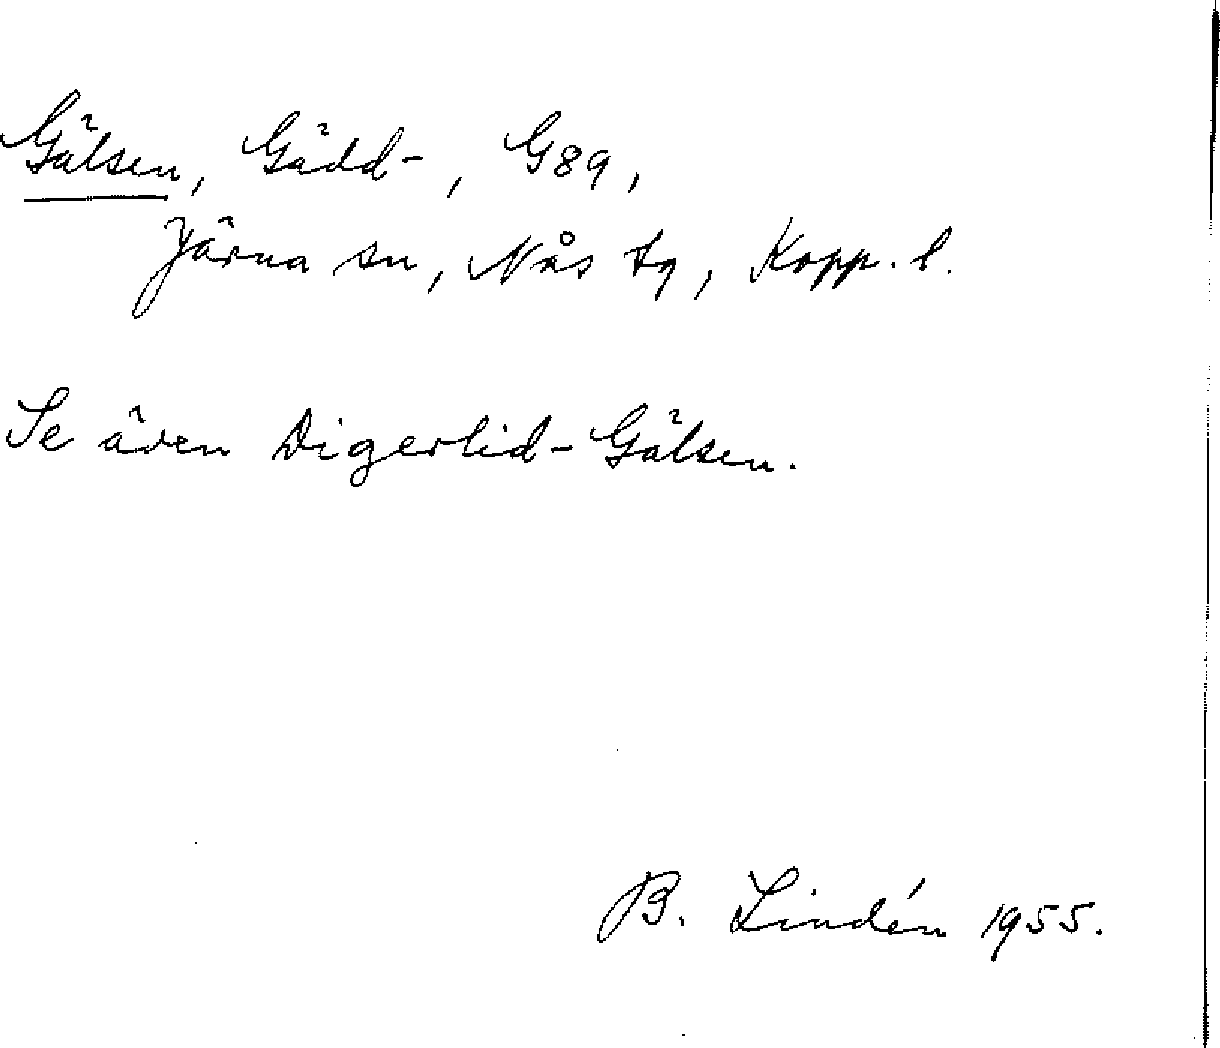 Gälsen, Gädd-, G89,
Järna sn, Nås tg, Kopp. l.
Se även Digerlid-Gälsen.
B. Lindén 1955.